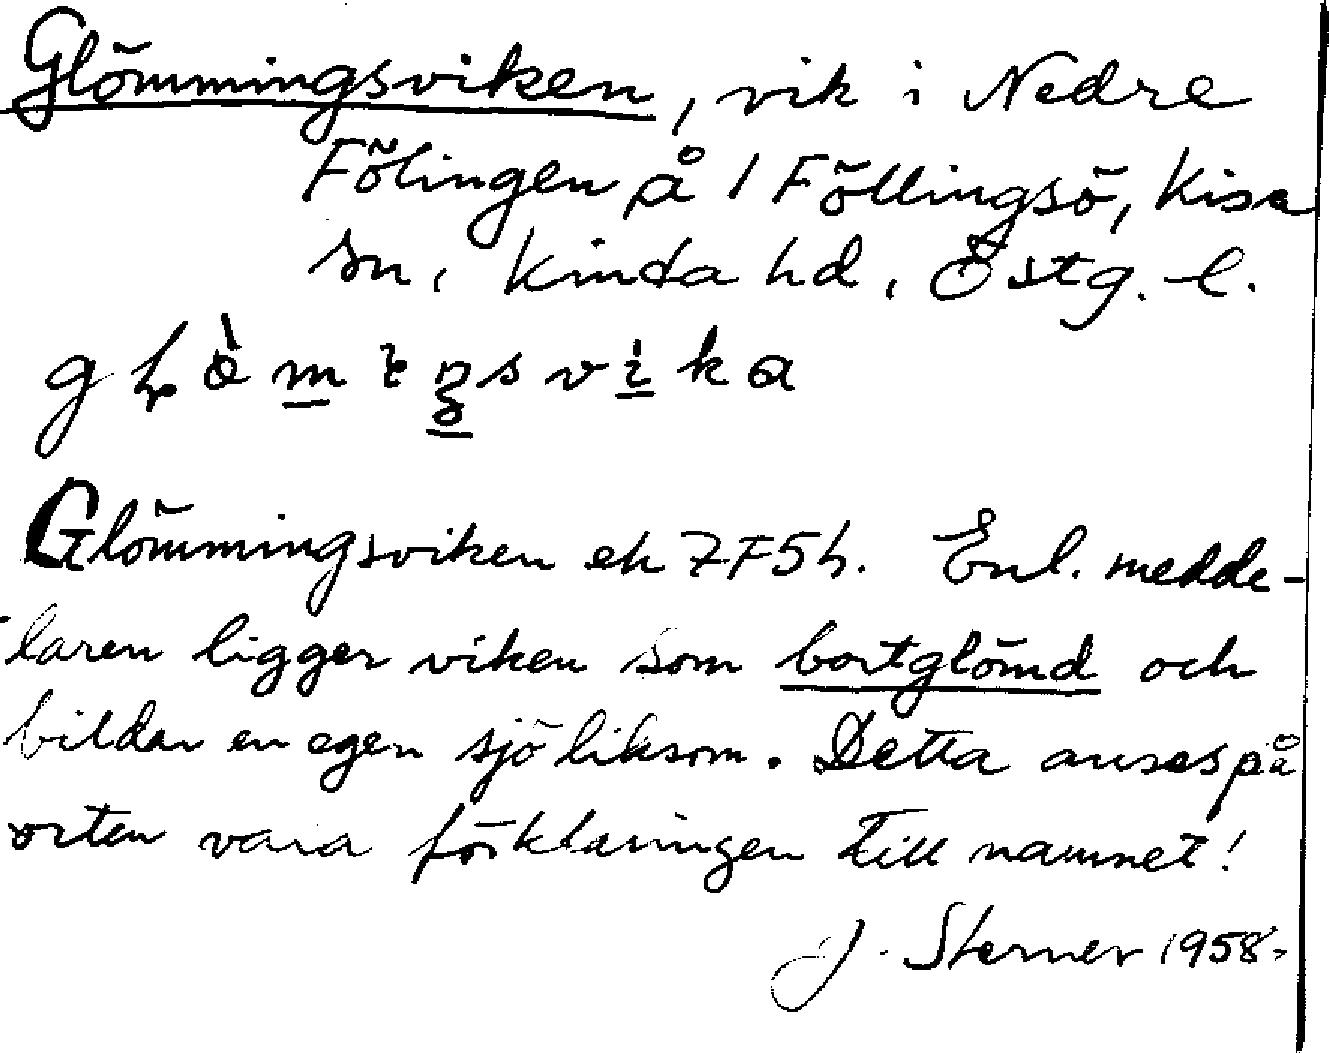 Glömmingsviken, vik i Nedre
Fölingen på 1 Föllingsö, Kisa
sn, Kinda hd, Östg. l.
Glömmingsviken ek 7F5h. Enl. medde-
laren ligger viken som bortglömd och
bildar en egen sjö liksom. Detta anses på
orten vara förklaringen till namnet!
J. Sterner 1958.